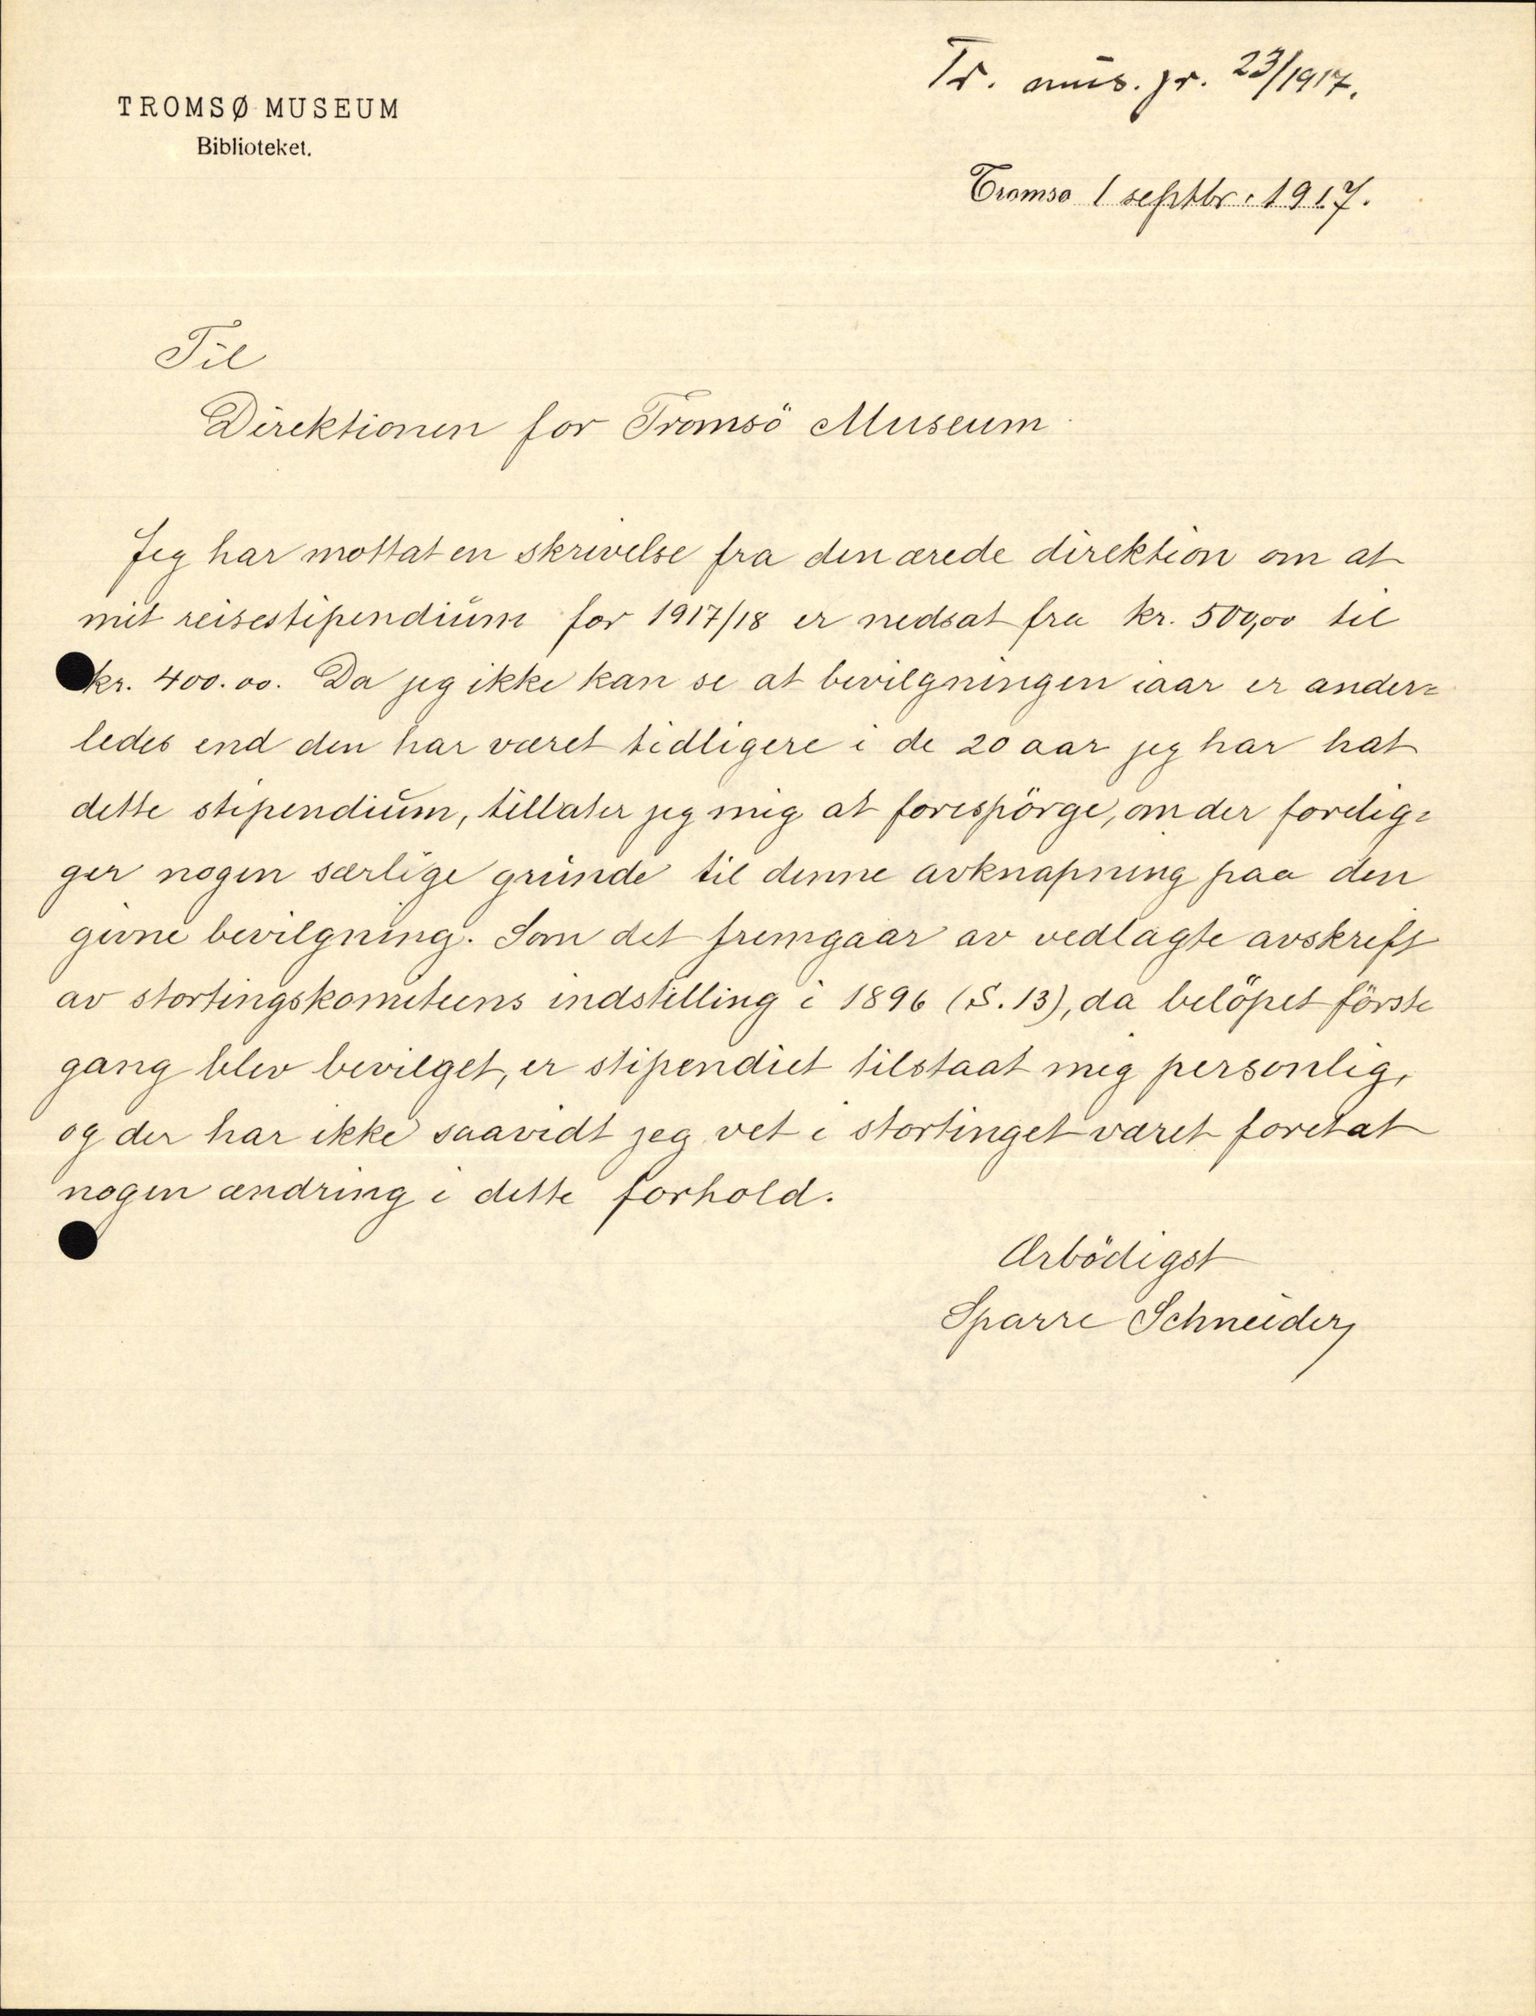 TROMSØ MUSEUM
Biblioteket.
Tr. mus. jr. 23/1917.
Tromsø 1 septbr. 1917.
Til
Direktionen for Tromsö Museum
Jeg har mottat en skrivelse fra den ærede direktion om at
mit reisestipendium for 1917/18 er nedsat fra kr. 500,00 til
kr. 400.00. Da jeg ikke kan se at bevilgningen iaar er ander=
ledes end den har været tidligere i de 20 aar jeg har hat
dette stipendium, tillater jeg mig at forespörge, om der forelig=
ger nogen særlige grunde til denne avknapning paa den
givne bevilgning. Som det fremgaar av vedlagte avskrift
av stortingskomiteens indstilling i 1896 (S. 13), da belöpet förste
gang blev bevilget, er stipendiet tilstaat mig personlig,
og der har ikke saavidt jeg vet i stortinget været foretat
nogen ændring i dette forhold.
Ærbödigst
Sparre Schneider